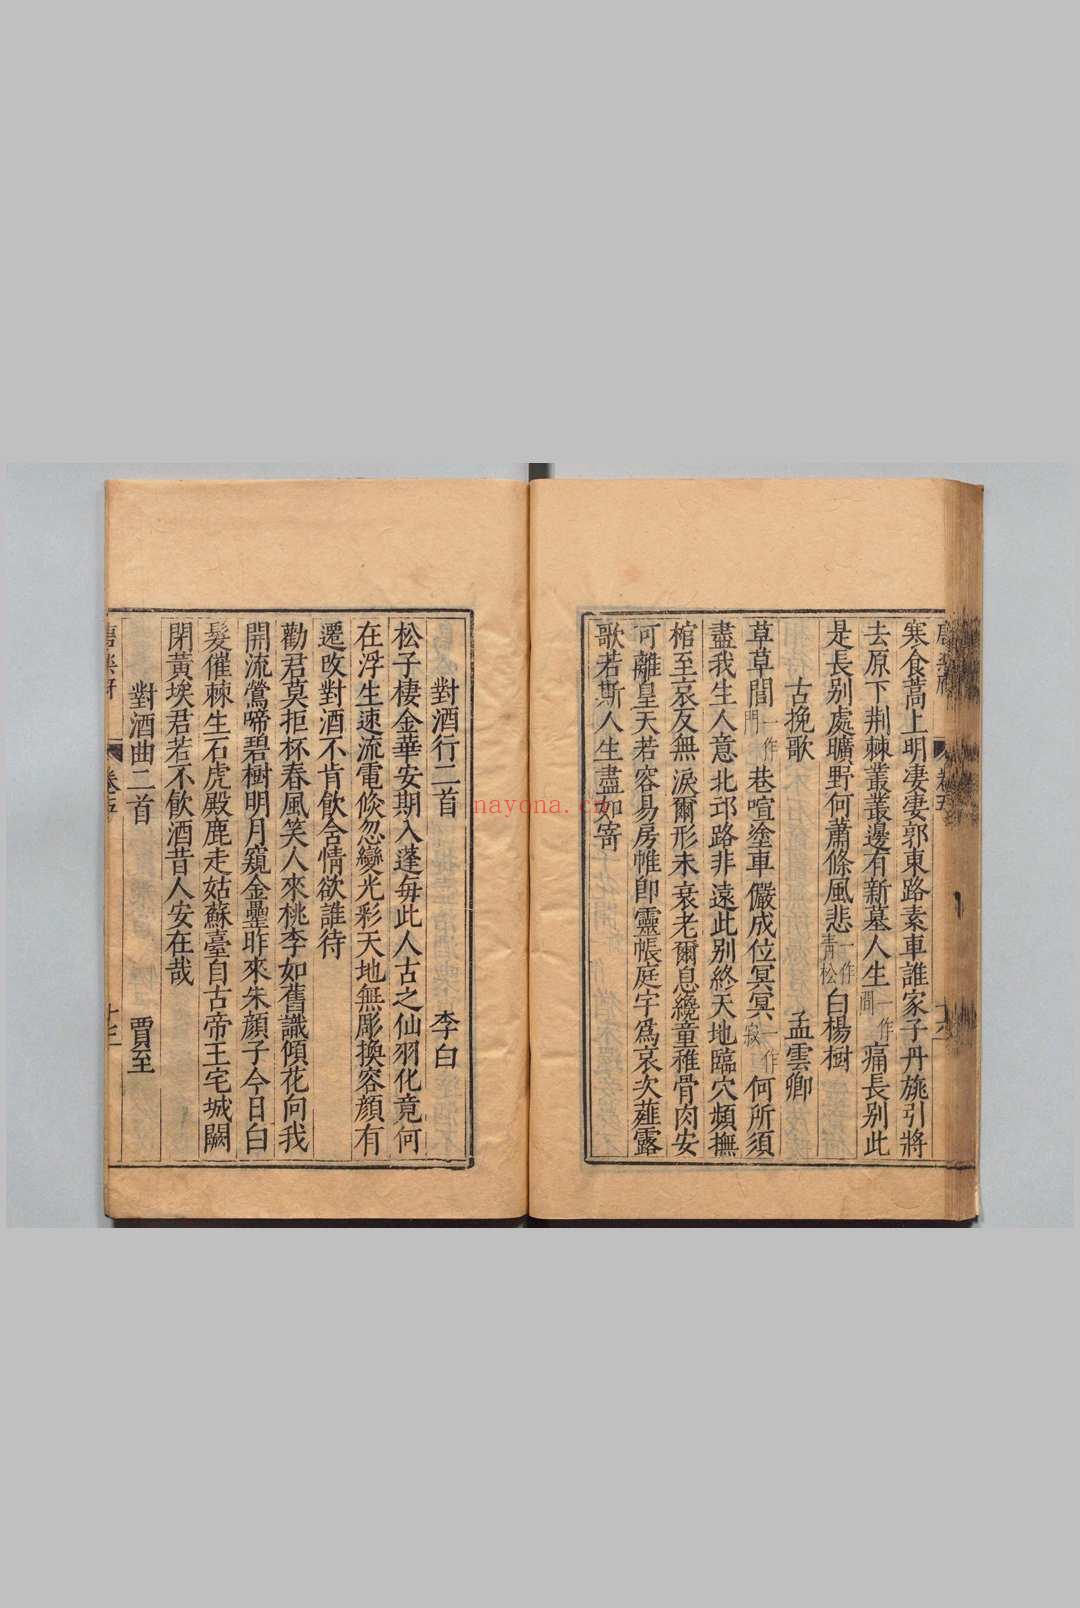 寒食蒿上明凄凄郭東路素車誰家子丹旐引將
去原下荆棘叢叢邊有新墓人生一作間痛長别此
是長别處曠野何蕭條風悲一作青松白楊樹
古挽歌 孟雲卿
草草閭一作門巷喧塗車儼成位冥冥一作寂何所須
盡我生人意北邙路非遠此别終天地臨穴頻撫
棺至哀友無淚爾形未衰老爾息繞童稚骨肉安
可離皇天若容易房帷即靈帳庭宇爲哀次薤露
歌若斯人生盡如寄
對酒行二首 李白
松子棲金華安期入蓬每此人古之仙羽化竟何
在浮生速流電倐忽變光彩天地無彫換容顔有
遷改對酒不肯飲含情欲誰待
勸君莫拒杯春風笑人來桃李如舊識傾花向我
開流鶯啼碧樹明月窺金罍昨來朱顔子今日白
髮催棘生石虎殿鹿走姑蘇臺自古帝王宅城闕
閉黃埃君若不飲酒昔人安在哉
對酒曲二首 賈至
唐樂府 卷五
nayona.cn